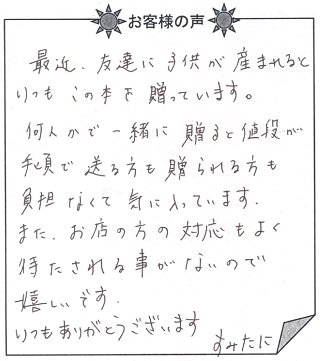 お客様の声
最近、友達に子供が産まれると
いつもこの本を贈っています。
何人かで一緒に贈ると値段が
手頃で送る方も贈られる方も
負担なくて気に入っています。
また、お店の方の対応もよく
待たされる事がないので
嬉しいです。
いつもありがとうございます
すみたに